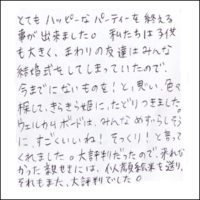 とてもハッピーなパーティーを終える
事が出来ました。私たちは子供
も大きく、まわりの友達はみんな
結婚式をしてしまっていたので、
今までにないものを!と思い、色々
探して、きらきら姫に、たどりつきました。
ウェルカムボードは、みんなめずらしそう
に、すごくいいね!そっくり!と言って
くれました。大評判だったので、来れな
かった親せきには、似顔絵米を送り、
それもまた、大評判でした。